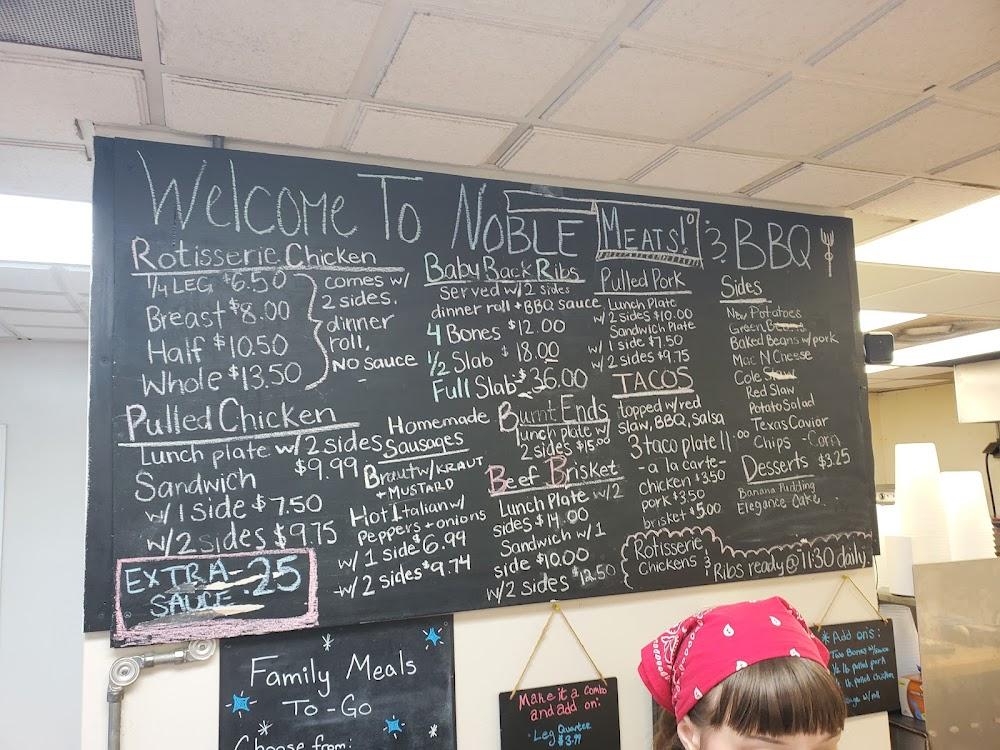 Welcome To Noble Meats! & BBQ
Rotisserie Chicken
1/4 LEG $6.50
Breast $8.00
Half $10.50
Whole $13.50
comes w/
2 sides.
dinner
roll,
No sauce
Pulled Chicken
Lunch plate w/ 2 sides
$9.99
Sandwich
w/ 1 side $7.50
w/ 2 sides $9.75
EXTRA - .25
SAUCE
Baby Back Ribs
Served w/ 2 sides
dinner roll + BBQ sauce
4 Bones $12.00
1/2 Slab $18.00
Full Slab $36.00
Homemade
Sausages
Braut w/ KRAUT
+ MUSTARD
Hot Italian w/
Peppers + onions
w/ 1 side $6.99
w/ 2 sides $9.74
Burnt Ends
lunch plate w/
2 sides $15.00
Beef Brisket
Lunch Plate w/2
sides $14.00
Sandwich w/1
side $10.00
w/ 2 sides $12.50
Pulled Pork
Lunch Plate
w/ 2 sides $10.00
Sandwich Plate
w/ 1 side $7.50
w/ 2 sides $9.75
TACOS
topped w/ red
slaw, BBQ, Salsa
3 taco plate 11.00
- a la carte -
chicken $3.50
pork $3.50
brisket $5.00
Sides
New Potatoes
Green Beans
Baked Beans w/ pork
Mac N Cheese
Cole Slaw
Red Slaw
Potato Salad
Texas Caviar
Chips - Corn
Desserts $3.25
Banana Pudding
Elegance Cake
Rotisserie
Chickens &
Ribs ready @ 11:30 daily
Family Meals
To-Go
Choose from:
Make it a Combo
and add on:
Leg Quarter
$3.99
* Add on's:
Two Bones
1/2 lb pulled pork
lb pulled chicken